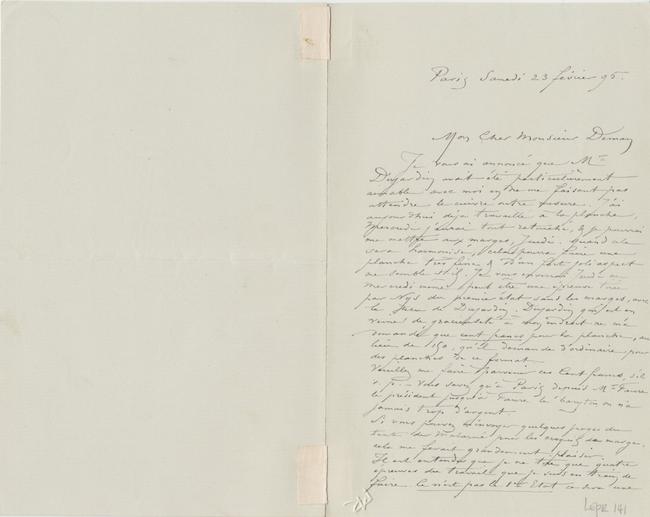 Paris Samedi 23 février 95.
Mon Cher Monsieur Deman
Je vous ai annoncé que Mr
Dujardin avait été particulièrement
aimable avec moi en ne me faisant pas
attendre le cuivre outre mesure. J'ai
aujourd'hui déjà travaillé à la planche,
Mercredi j'aurai tout retouché, & je pourrai
me mettre aux marges, Jeudi. Quand cela
sera harmonisé, cela pourra faire une
planche très fine & d'un fort joli aspect
me semble-t-il. Je vous enverrai Jeudi ou
mercredi même peut être une épreuve tirée
par Nys du premier état sans les marges, avec
le de Dujardin. Dujardin qui est en
veine de gracieuseté à mon endroit ne m'a
demandé que cent francs pour la planche, au
lieu de 150, qu'il demande d'ordinaire pour
des planches de ce format
Veuillez me faire parvenir ces Cent francs, s'il
v. p. - Vous savez qu'à Paris depuis Mr Faure
le président jusqu'à Faure le baryton on n'a
jamais trop d'argent.
Si vous pouvez m'envoyer quelques proses du
texte de Mallarmé pour les croquis de marge,
cela me ferait grandement plaisir.
Il est entendu que je ne tire que quatre
épreuves du travail que je suis en train de
faire. Ce n'est pas le 1er Etat ce sera une
LEPR 141